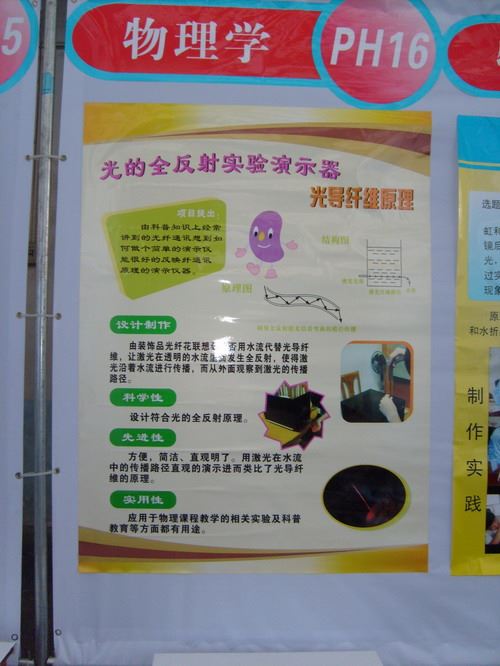 5
物理学
PH16
光的全反射实验演示器
光导纤维原理
项目提出：
由科普知识上经常
讲到的光纤通讯想到如
何做个简单的演示仪
能很好的反映纤通讯
原理的演示仪器。
结构图
原理图
设计制作
由装饰品光纤花联想
否用水流代替光导纤
维，让激光在透明的水流
发生全反射，使得激
光沿着水流进行传播，而从外面观察到激光的传播
路径。
科学性
设计符合光的全反射原理。
先进性
方便，简洁、直观明了。用激光在水流
中的传播路径直观的演示进而类比了光导纤
维的原理。
实用性
应用于物理课程教学的相关实验及科普
教育等方面都有用途。
选题
虹和
镜后
光，
过实
现象
原
和水折
制
作
实
践